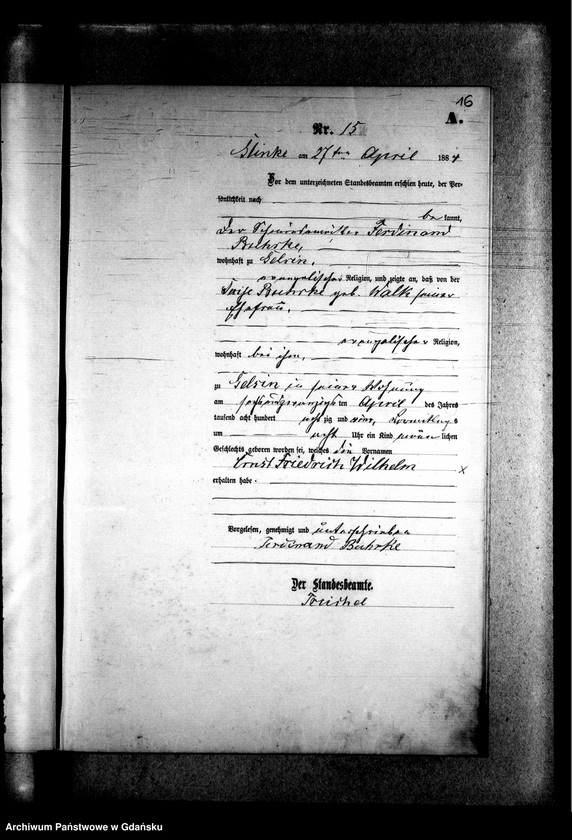 16
A.
Nr. 15
Glinke am 27ten April 1884
Vor dem unterzeichneten Standesbeamten erschien heute, der Per-
sönlichkeit nach
bekannt,
der Ferdinand
Buhrke,
wohnhaft zu Gelsin,
evangelischer Religion, und zeigte an, daß von der
Buhrke geb. Walk seiner
Ehefrau,
evangelischer Religion,
wohnhaft bei ihm,
zu Gelsin in seiner Wohnung
am sechsundzwanzigsten April des Jahres
tausend acht hundert achtzig und vier, Vormittags
um acht Uhr ein Kind männlichen
Geschlechts geboren worden sei, welches die Vornamen
Ernst Friedrich Wilhelm x
erhalten habe.
Vorgelesen, genehmigt und unterschrieben
Ferdinand Buhrke
Der Standesbeamte.
Archiwum Państwowe w Gdańsku